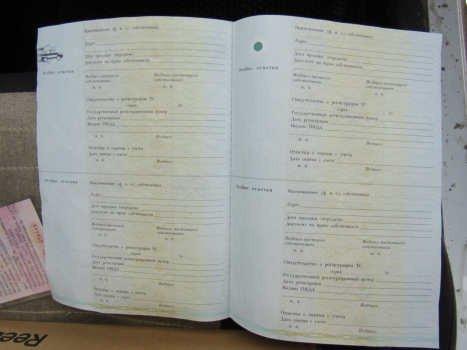 Наименование (ф. и. о.) собственника
Адрес
Дата продажи (передачи)
Документ на право собственности
Особые отметки
Подпись прежнего собственника
Подпись настоящего собственника
М. П.
М. П.
Свидетельство о регистрации ТС
серия №
Государственный регистрационный номер
Дата регистрации
Выдано ГИБДД
М. П. Подпись
Отметка о снятии с учета
Дата снятия с учета
М. П. Подпись
Особые отметки
Наименование (ф. и. о.) собственника
Адрес
Дата продажи (передачи)
Документ на право собственности
Подпись прежнего собственника
Подпись настоящего собственника
М. П.
М. П.
Свидетельство о регистрации ТС
серия №
Государственный регистрационный номер
Дата регистрации
Выдано ГИБДД
М. П. Подпись
Отметка о снятии с учета
Дата снятия с учета
М. П. Подпись
Наименование (ф. и. о.) собственника
Адрес
Дата продажи (передачи)
Документ на право собственности
Особые отметки
Подпись прежнего собственника
Подпись настоящего собственника
М. П.
М. П.
Свидетельство о регистрации ТС
серия №
Государственный регистрационный номер
Дата регистрации
Выдано ГИБДД
М. П. Подпись
Отметка о снятии с учета
Дата снятия с учета
М. П. Подпись
Особые отметки
Наименование (ф. и. о.) собственника
Адрес
Дата продажи (передачи)
Документ на право собственности
Подпись прежнего собственника
Подпись настоящего собственника
М. П.
М. П.
Свидетельство о регистрации ТС
серия №
Государственный регистрационный номер
Дата регистрации
Выдано ГИБДД
М. П. Подпись
Отметка о снятии с учета
Дата снятия с учета
М. П. Подпись